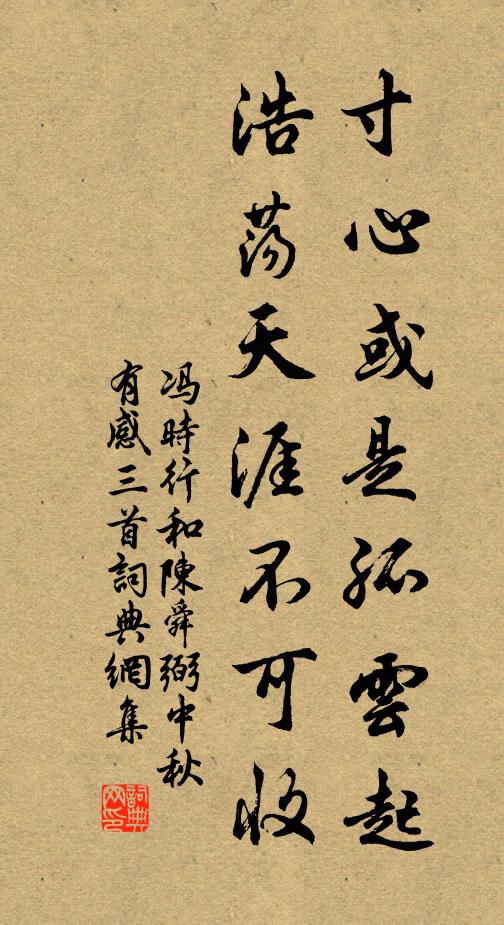 寸心或是孤雲起
浩蕩天涯不可收
冯時行和陳舜弼中秋
有感三首詞典網集
詞典网印